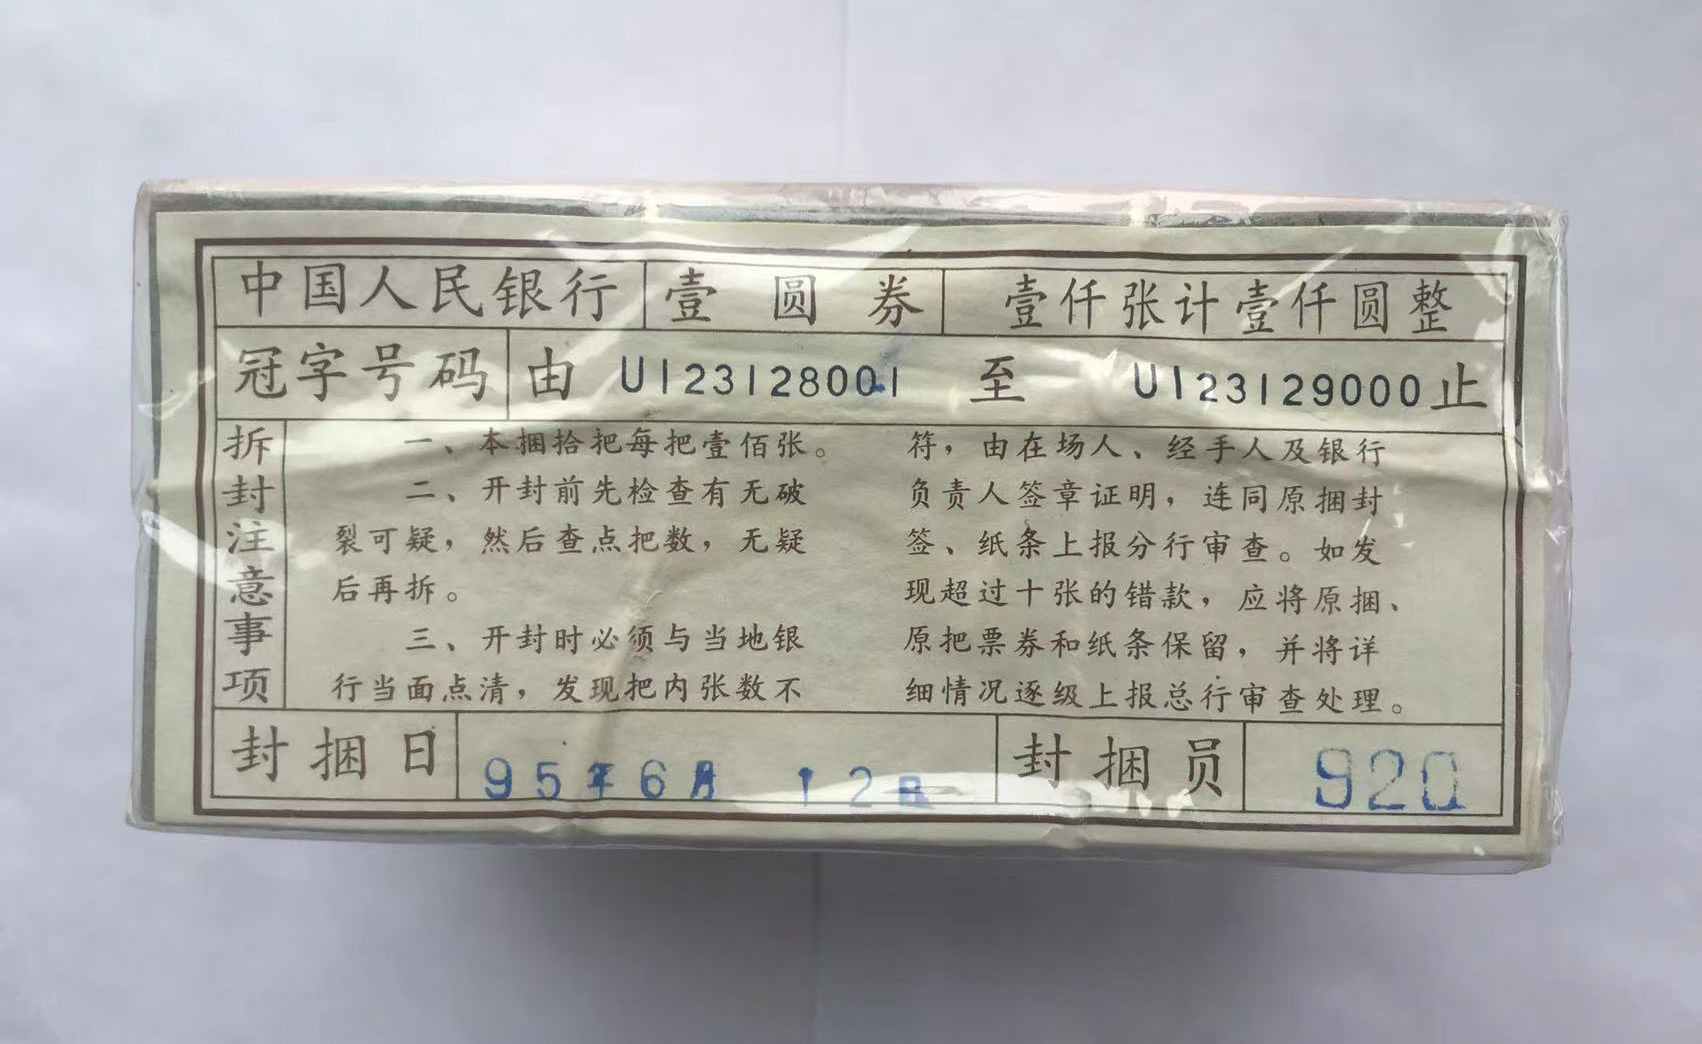 中国人民银行 壹圆券 壹仟张计壹仟圆整
冠字号码 由 UI23128001 至 UI23129000 止
拆封注意事项
一、本捆拾把每把壹佰张。
二、开封前先检查有无破
裂可疑，然后查点把数，无疑
后再拆。
三、开封时必须与当地银
行当面点清，发现把内张数不
符，由在场人、经手人及银行
负责人签章证明，连同原捆封
签、纸条上报分行审查。如发
现超过十张的错款，应将原捆、
原把票券和纸条保留，并将详
细情况逐级上报总行审查处理。
封捆日 95年6月12日 封捆员 920